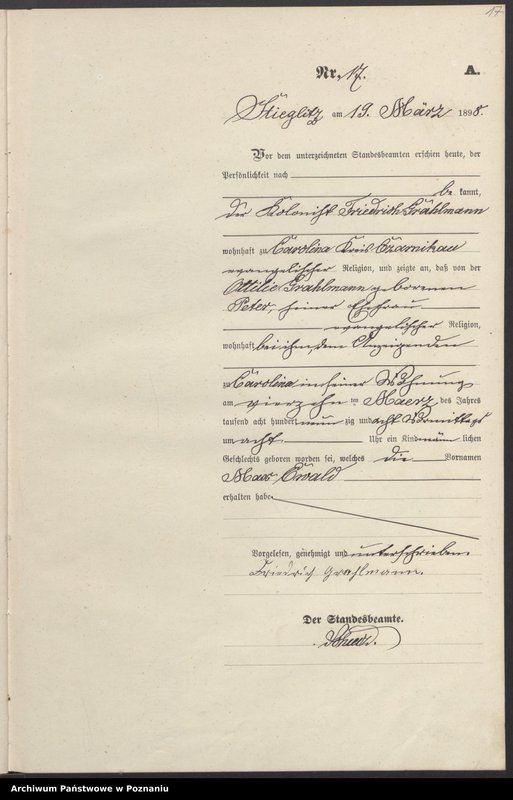 17
Nr. 17. A.
Stieglitz am 19. März 1898.
Vor dem unterzeichneten Standesbeamten erschien heute, der
Persönlichkeit nach
be kannt,
der Kolonist Friedrich Grählmann
wohnhaft zu Carolina Kreis Czarnikau
evangelischer Religion, und zeigte an, daß von der
Ottilie Grahlmann geborenen
Peter, seiner Ehefrau
evangelischer Religion,
wohnhaft bei ihm, dem Anzeigenden
zu Carolina in seiner Wohnung
am vierzehn ten Maerz des Jahres
tausend acht hundert neun zig und acht Vormittags
um acht Uhr ein Kind männ lichen
Geschlechts geboren worden sei, welches die Vornamen
Max Ewald
erhalten habe.
Vorgelesen, genehmigt und unterschrieben.
Friedrich Grahlmann.
Der Standesbeamte.
Archiwum Państwowe w Poznaniu